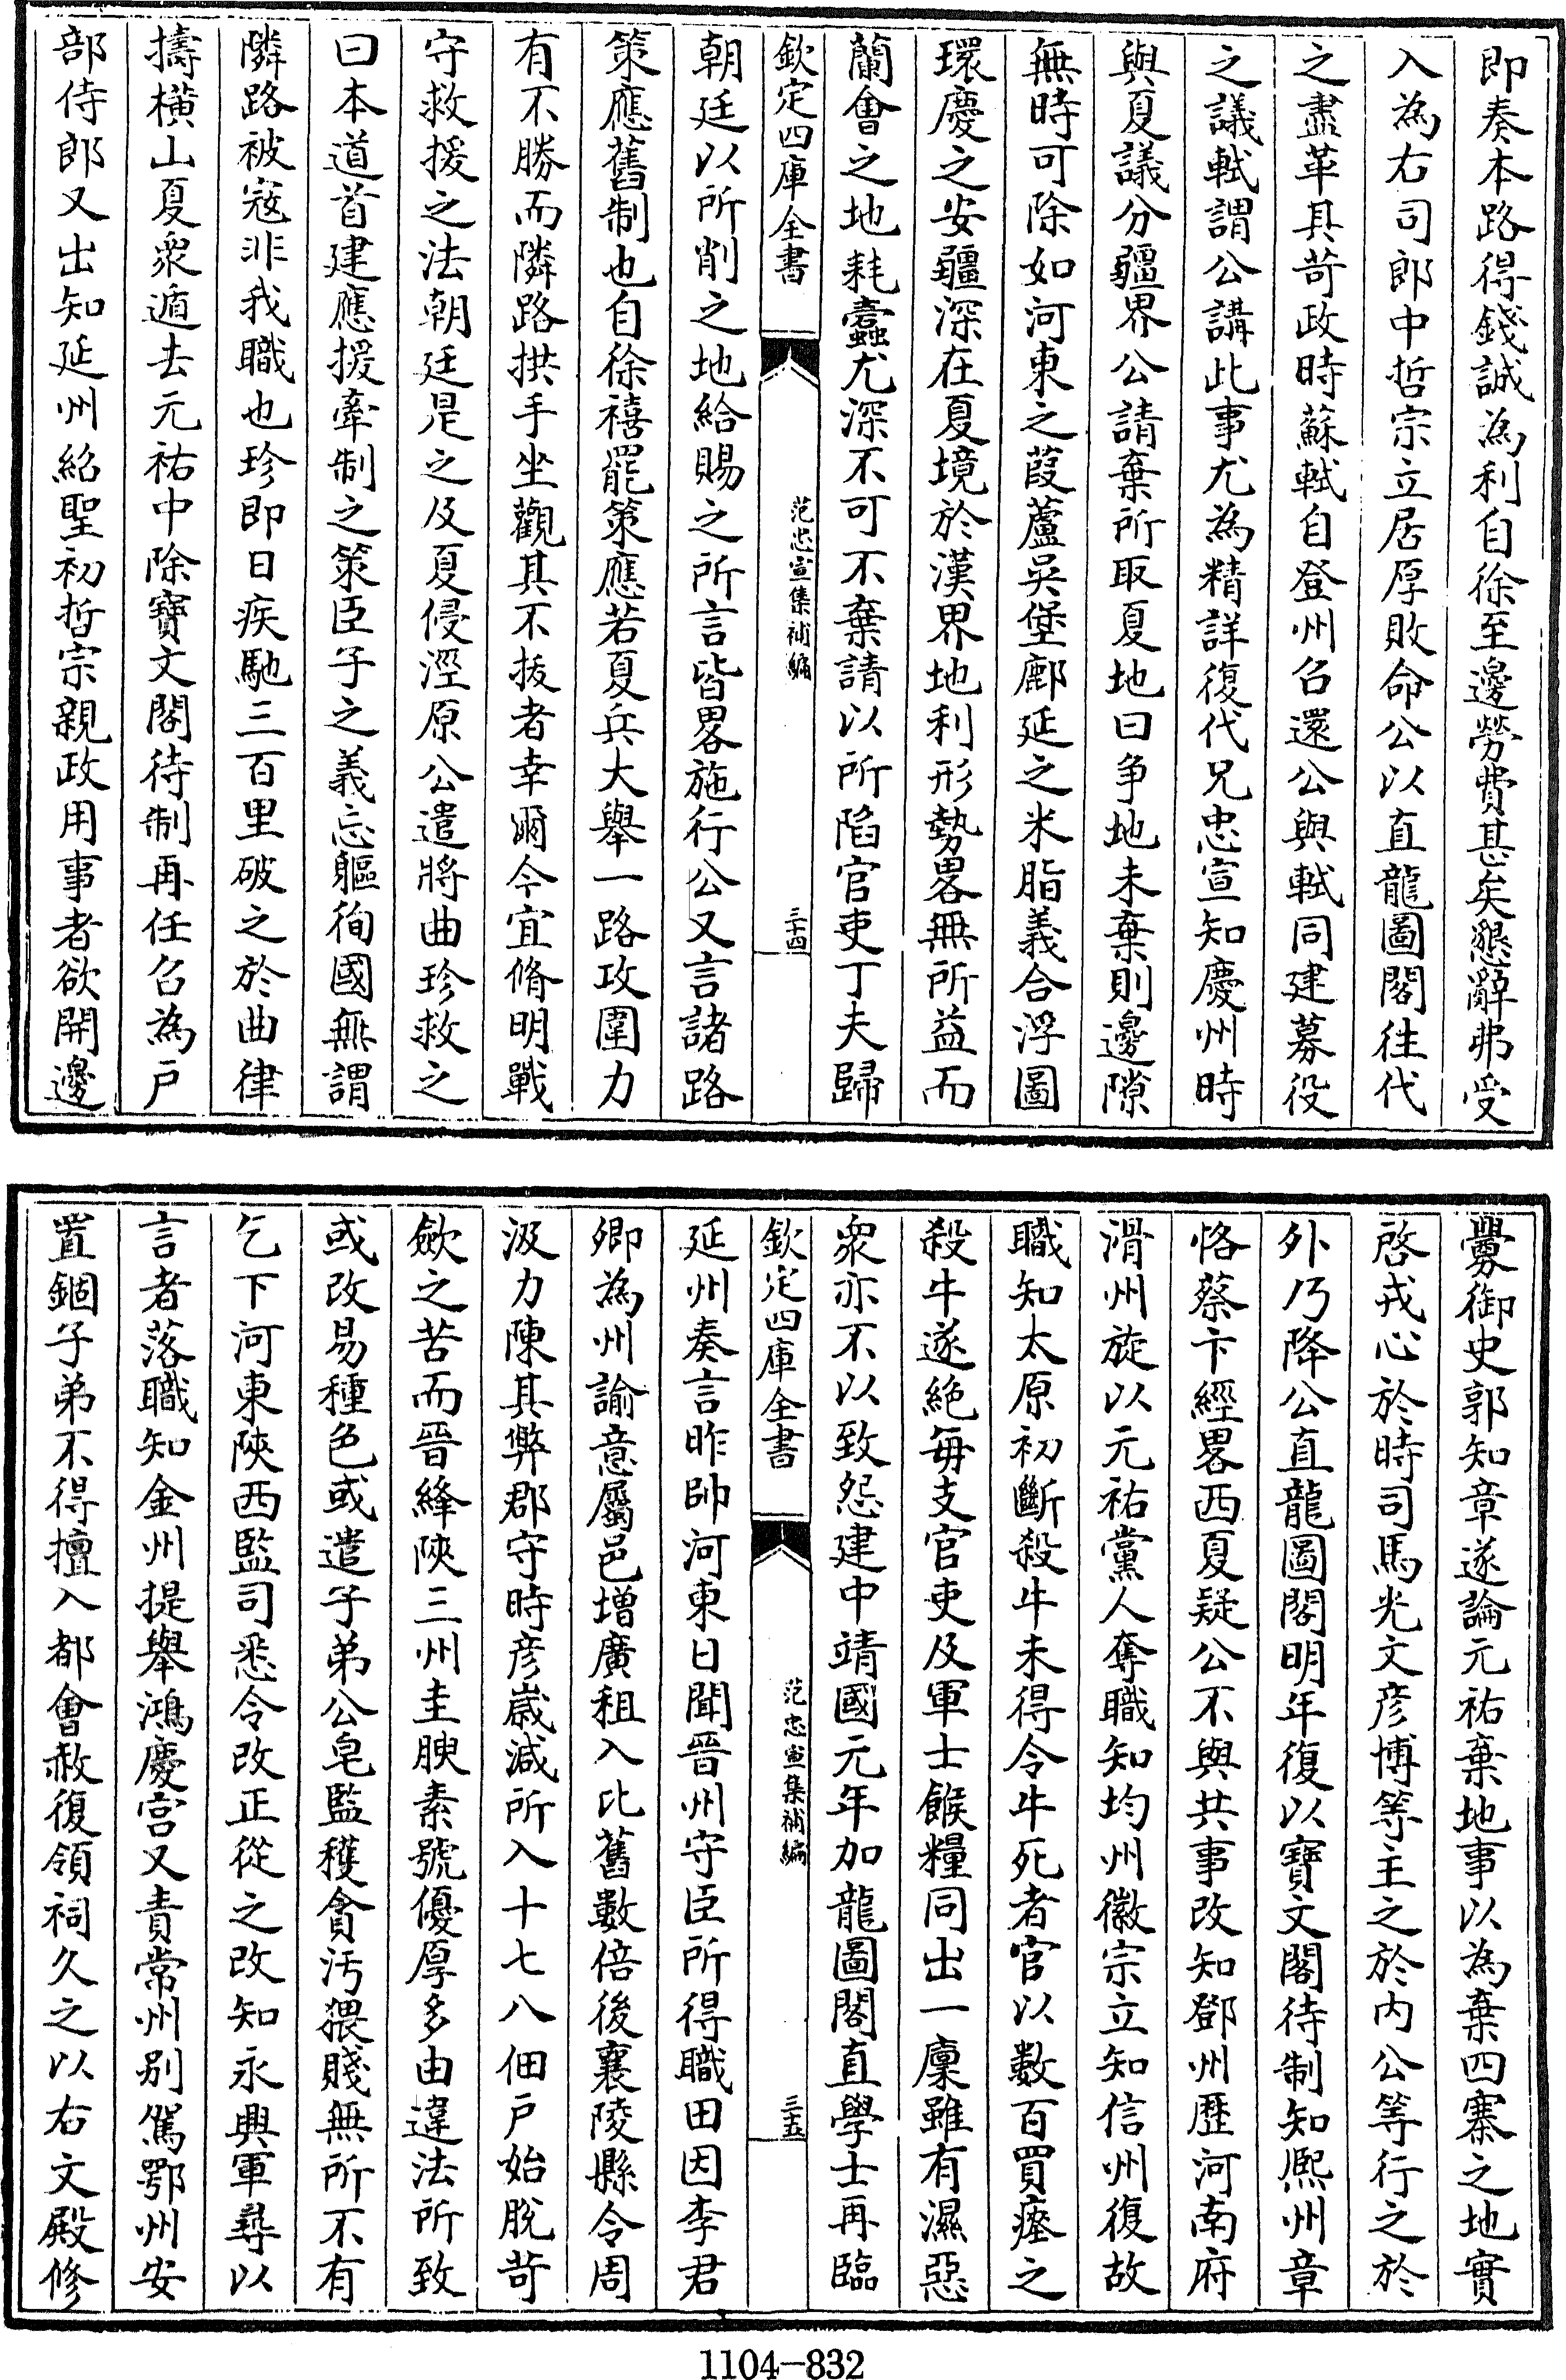 即奏本路得錢誠為利自徐至邊勞費甚矣懇辭弗受
入為右司郎中哲宗立居厚敗命公以直龍圖閣徃代
之盡革其苛政時蘇軾自登州召還公與軾同建募役
之議軾謂公講此事尤為精詳復代兄忠宣知慶州時
與夏議分疆界公請棄所取夏地曰爭地未棄則邊隙
無時可除如河東之葭蘆吳堡鄜延之米脂義合浮圖
環慶之安疆深在夏境於漢界地利形勢畧無所益而
蘭會之地耗蠧尤深不可不棄請以所陷官吏丁夫歸
欽定四庫全書
范忠宣集補編
三十四
朝廷以所削之地給賜之所言皆畧施行公又言諸路
策應舊制也自徐禧罷策應若夏兵大舉一路攻圍力
有不勝而隣路拱手坐觀其不拔者幸爾今宜脩明戰
守救援之法朝廷是之及夏侵涇原公遣將曲珍救之
曰本道首建應援牽制之策臣子之義忘軀徇國無謂
隣路被寇非我職也珍即日疾馳三百里破之於曲律
擣橫山夏衆遁去元祐中除寶文閣待制再任召為户
部侍郎又出知延州紹聖初哲宗親政用事者欲開邊
釁御史郭知章遂論元祐棄地事以為棄四寨之地實
啓戎心於時司馬光文彥博等主之於内公等行之於
外乃降公直龍圖閣明年復以寶文閣待制知熙州章
惇蔡卞經畧西夏疑公不與共事改知鄧州歷河南府
滑州旋以元祐黨人奪職知均州徽宗立知信州復故
職知太原初斷殺牛未得令牛死者官以數百買瘞之
殺牛遂絶每支官吏及軍士餱糧同出一廩雖有濕惡
衆亦不以致怨建中靖國元年加龍圖閣直學士再臨
欽定四庫全書
范忠宣集補編
三十五
延州奏言昨帥河東日聞晉州守臣所得職田因李君
卿為州諭意屬邑增廣租入比舊數倍後襄陵縣令周
汲力陳其弊郡守時彦嵗減所入十七八佃户始脫苛
斂之苦而晉絳陜三州圭腴素號優厚多由違法所致
或改易種色或遣子弟公皂監穫貪汚猥賤無所不有
乞下河東陜西監司悉令改正從之改知永興軍尋以
言者落職知金州提舉鴻慶宫又責常州别駕鄂州安
置錮子弟不得擅入都會赦復領祠久之以右文殿修
1104-832